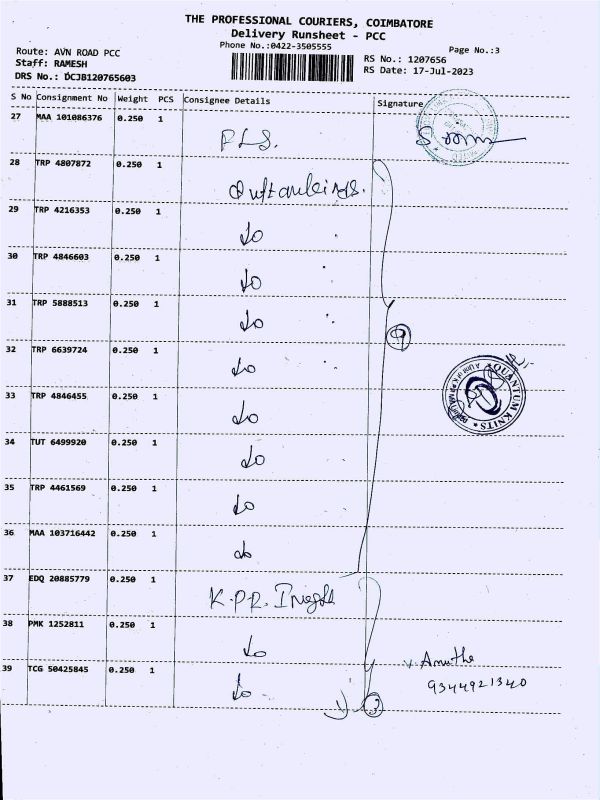 THE PROFESSIONAL COURIERS, COIMBATORE
Delivery Runsheet - PCC
Phone No.:0422-3505555
Page No.:3
Route: AVN ROAD PCC
Staff: RAMESH
DRS No.: DCJB120765603
RS No.: 1207656
RS Date: 17-Jul-2023
S No Consignment No Weight PCS Consignee Details Signature
27 MAA 101086376 0.250 1
28 TRP 4807872 0.250 1
29 TRP 4216353 0.250 1 do
30 TRP 4846603 0.250 1 do
31 TRP 5888513 0.250 1 do
32 TRP 6639724 0.250 1 do
33 TRP 4846455 0.250 1 do
34 TUT 6499920 0.250 1 do
35 TRP 4461569 0.250 1 do
36 MAA 103716442 0.250 1 do
9
QUANTUM KNITS
37 EDQ 20885779 0.250 1 K.P.R.
38 PMK 1252811 0.250 1 do
39 TCG 50425845 0.250 1 do
3
V. Amutha
9344921340